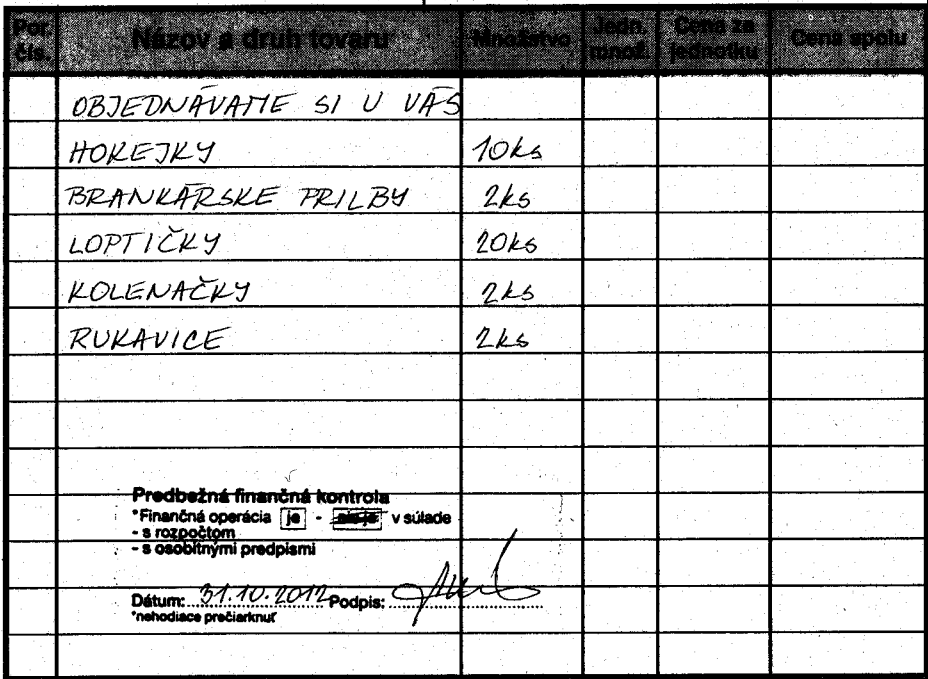 Por. čís. Názov a druh tovaru Množstvo Jedn. množ. Cena za jednotku Cena spolu
OBJEDNÁVAME SI U VÁS
HOKEJKY 10ks
BRANKÁRSKE PRILBY 2ks
LOPTIČKY 20ks
KOLENAČKY 2ks
RUKAVICE 2ks
Predbežná finančná kontrola
*Finančná operácia je - nie je v súlade
- s rozpočtom
- s osobitnými predpismi
Dátum: 31.10.2012 Podpis:
*nehodiace prečiarknuť